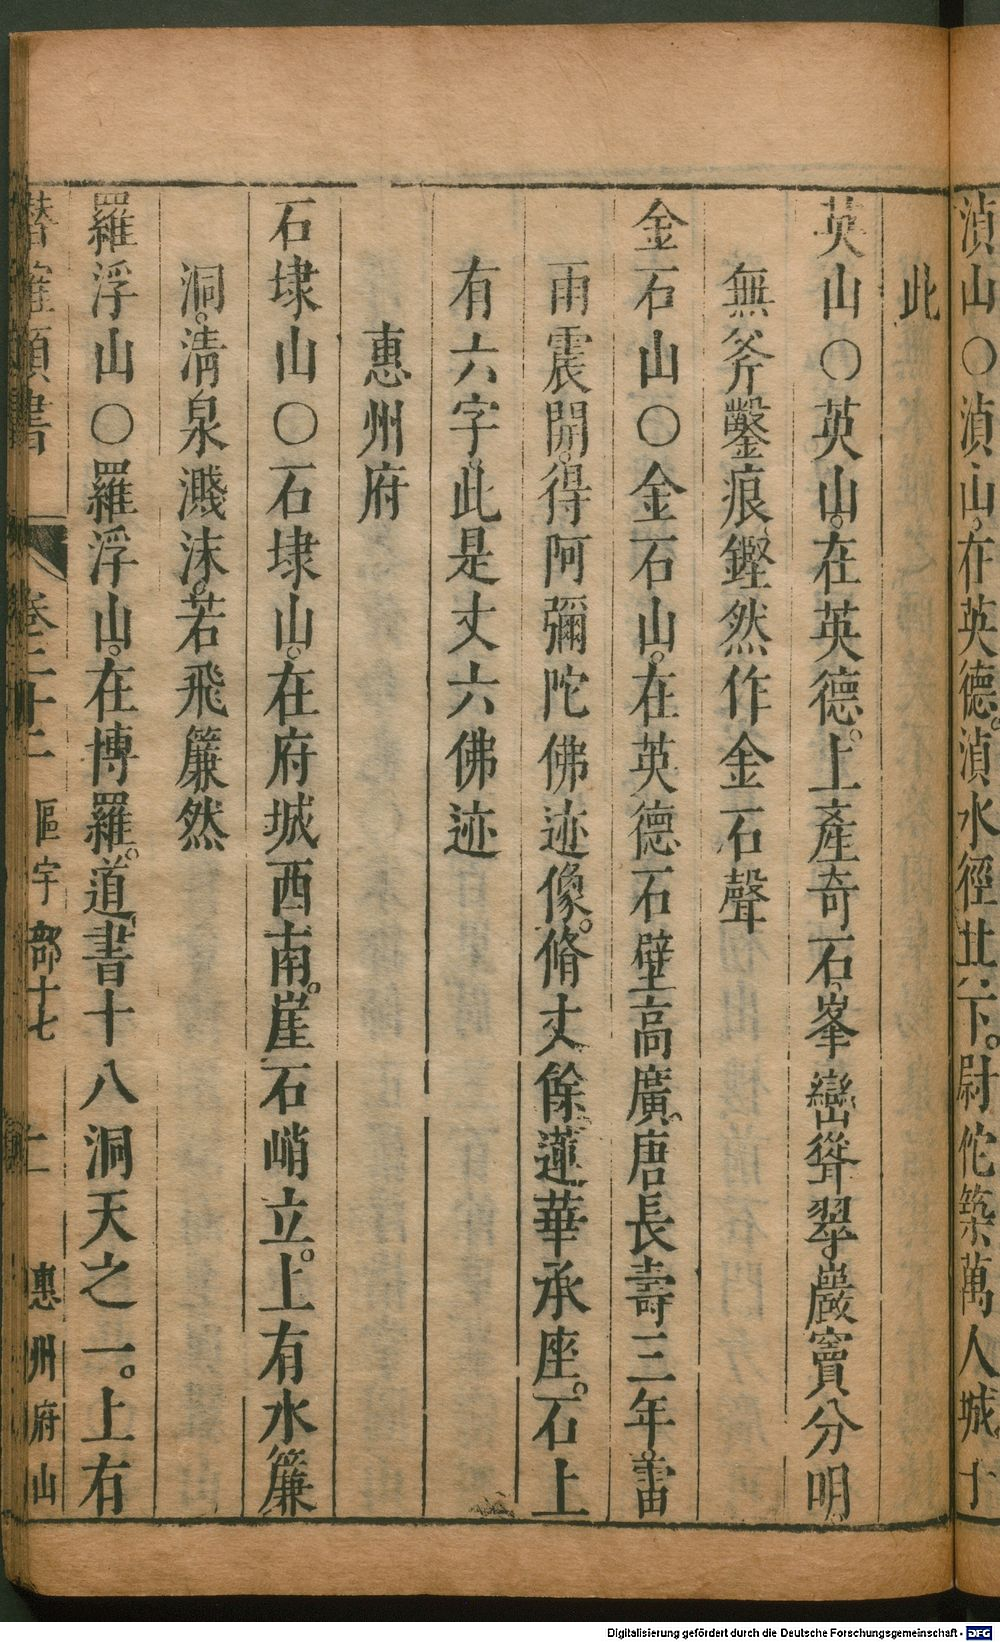 湞山○湞山。在英德。湞水徑其下。尉佗築萬人城于
此
英山○英山。在英德。上產奇石。峯巒聳翠。巖竇分明。
無斧鑿痕。鏗然作金石聲
金石山○金石山。在英德石壁高廣。唐長壽三年。雷
雨震開。得阿彌陀佛迹像。脩丈餘蓮華承座。石上
有六字。此是丈六佛迹
惠州府
石埭山○石埭山。在府城西南。崖石峭立。上有水簾
洞。清泉濺沫。若飛簾然
羅浮山○羅浮山。在博羅。道書十八洞天之一。上有
潛確類書 卷三十二 區宇部十七 惠州府山
Digitalisierung gefördert durch die Deutsche Forschungsgemeinschaft - DFG